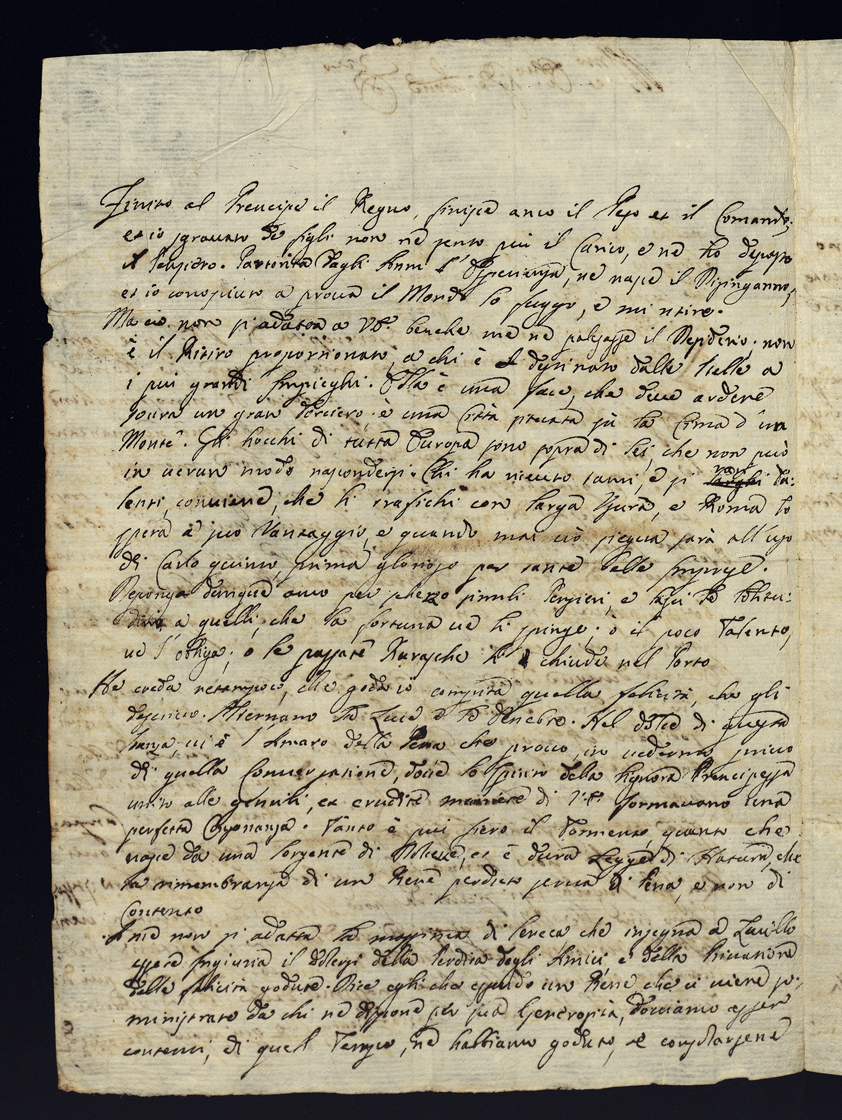 Finito al Prencipe il Regno, finisce anco il Peso et il Comando;
et io sgravato de figli non ne sento piu il Carico, e ne ho deposto
il Pensiero. Partorita dagli Anni l'Esperienza, ne nasce il Disinganno,
et io conosciuto a prova il Mondo lo fuggo, e mi ritiro.
Ma cio non si adatta a V.S. benche me ne palesasse il Desiderio; non
è il Ritiro proporzionato, a chi è destinato dalle stelle a
i piu grandi Impieghi. Ella è una face, che deve ardere
sovra un gran Torciero: è una Città situata sù la Cima d'un
Monte. Gli hocchi di tutta Europa sono sopra di Lei, che non può
in verun modo nascondersi. Chi ha ricevuto tanti, e sì rari Ta:
lenti, conviene, che li traffichi con larga Usura, e Roma lo
spera a suo Vantaggio, e quando mai ciò segua, sarà all'uso
di Carlo quinto, prima glorioso per tante belle Imprese.
Deponga dunque anco per scherzo simili Pensieri, e lasci la solitu:
dine a quelli, che la fortuna ve li spinge; o il poco Talento,
ve l'obliga; o le passate Burasche li chiude nel Porto
Ne creda netampoco, che goda io compita quella felicità, che gli
descrivo. Alternano la Luce e le Tenebre. Nel dolce di questa
stanza, vi è l'Amaro della Pena che provo, in vedermi privo
di quella Conversazione, dove lo spirito della signora Prencipessa
unito alle gentili, et erudite maniere di V.S. formavano una
perfetta Consonanza. Tanto è piu fiero il Tormento, quanto che
nasce da una sorgente di Dolcezze, et è dura Legge di Natura, che
la rimembranza di un Bene perduto serva di Pena, e non di
Contento
In me non si adatta la massima di Seneca che insegna a Lucillo
essere ingiuria il dolersi della Perdita degli Amici, e della Privazione
delle felicità godute. Dice egli che essendo un Bene che ci viene so:
ministrato da chi ne dispone per sua, dobbiamo esser
contenti, di quel Tempo, ne habbiamo goduto, e consolarsene